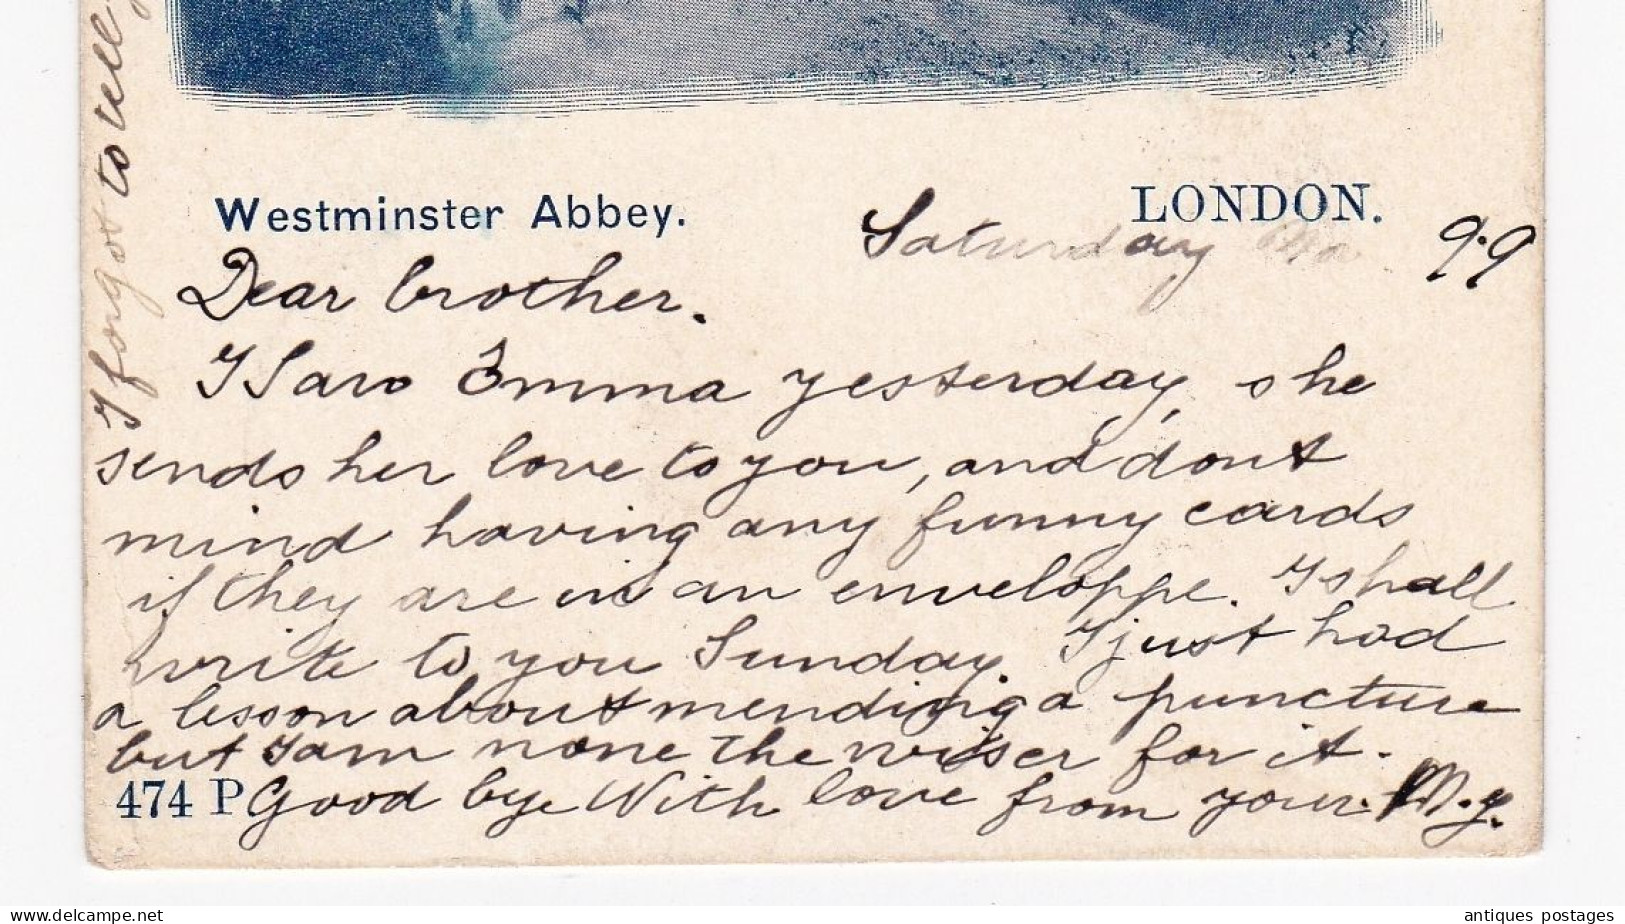 Westminster Abbey.
LONDON.
Saturday 9.9
Dear brother.
I saw Emma yesterday, she
sends her love to you, and dont
mind having any funny cards
if they are in an enveloppe. I shall
write to you Sunday. I just had
a lesson about mending a puncture
but I am none the wiser for it.
474 P Good bye With love from your. M.y.
I forgot to tell
www.delcampe.net
antiques postages